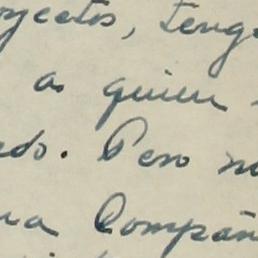 oyectos, tengo
a quien
edo. Pero no
una Compañ